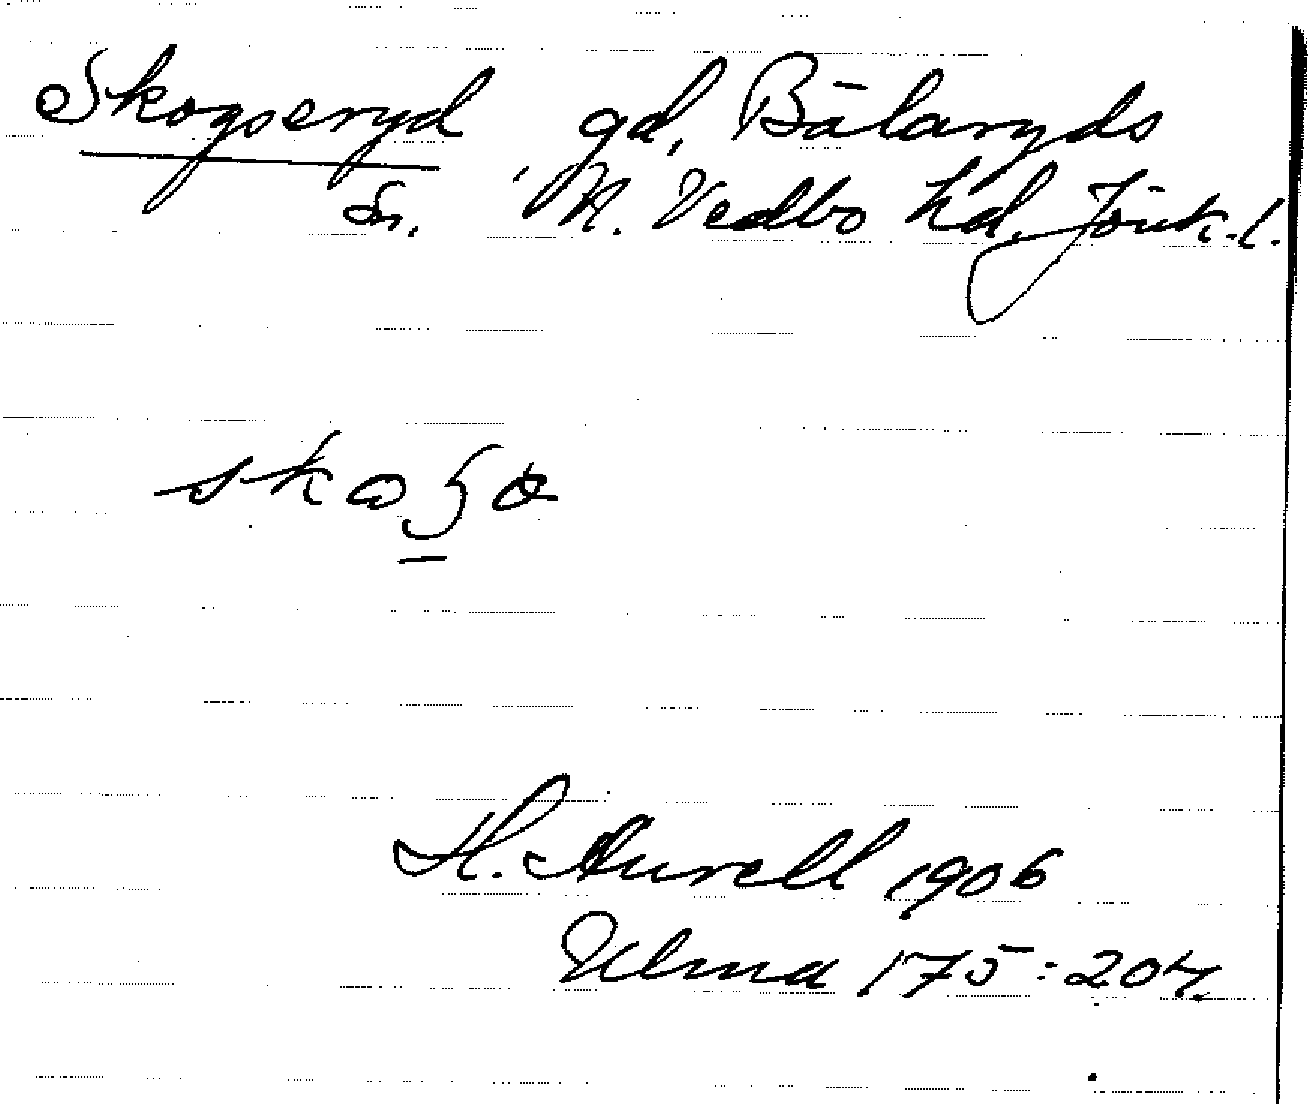 Skogseryd gd, Bälaryds
sn. N. Vedbo hd, Jönk. l.
H. Aurell 1906
Ulma 175:204.